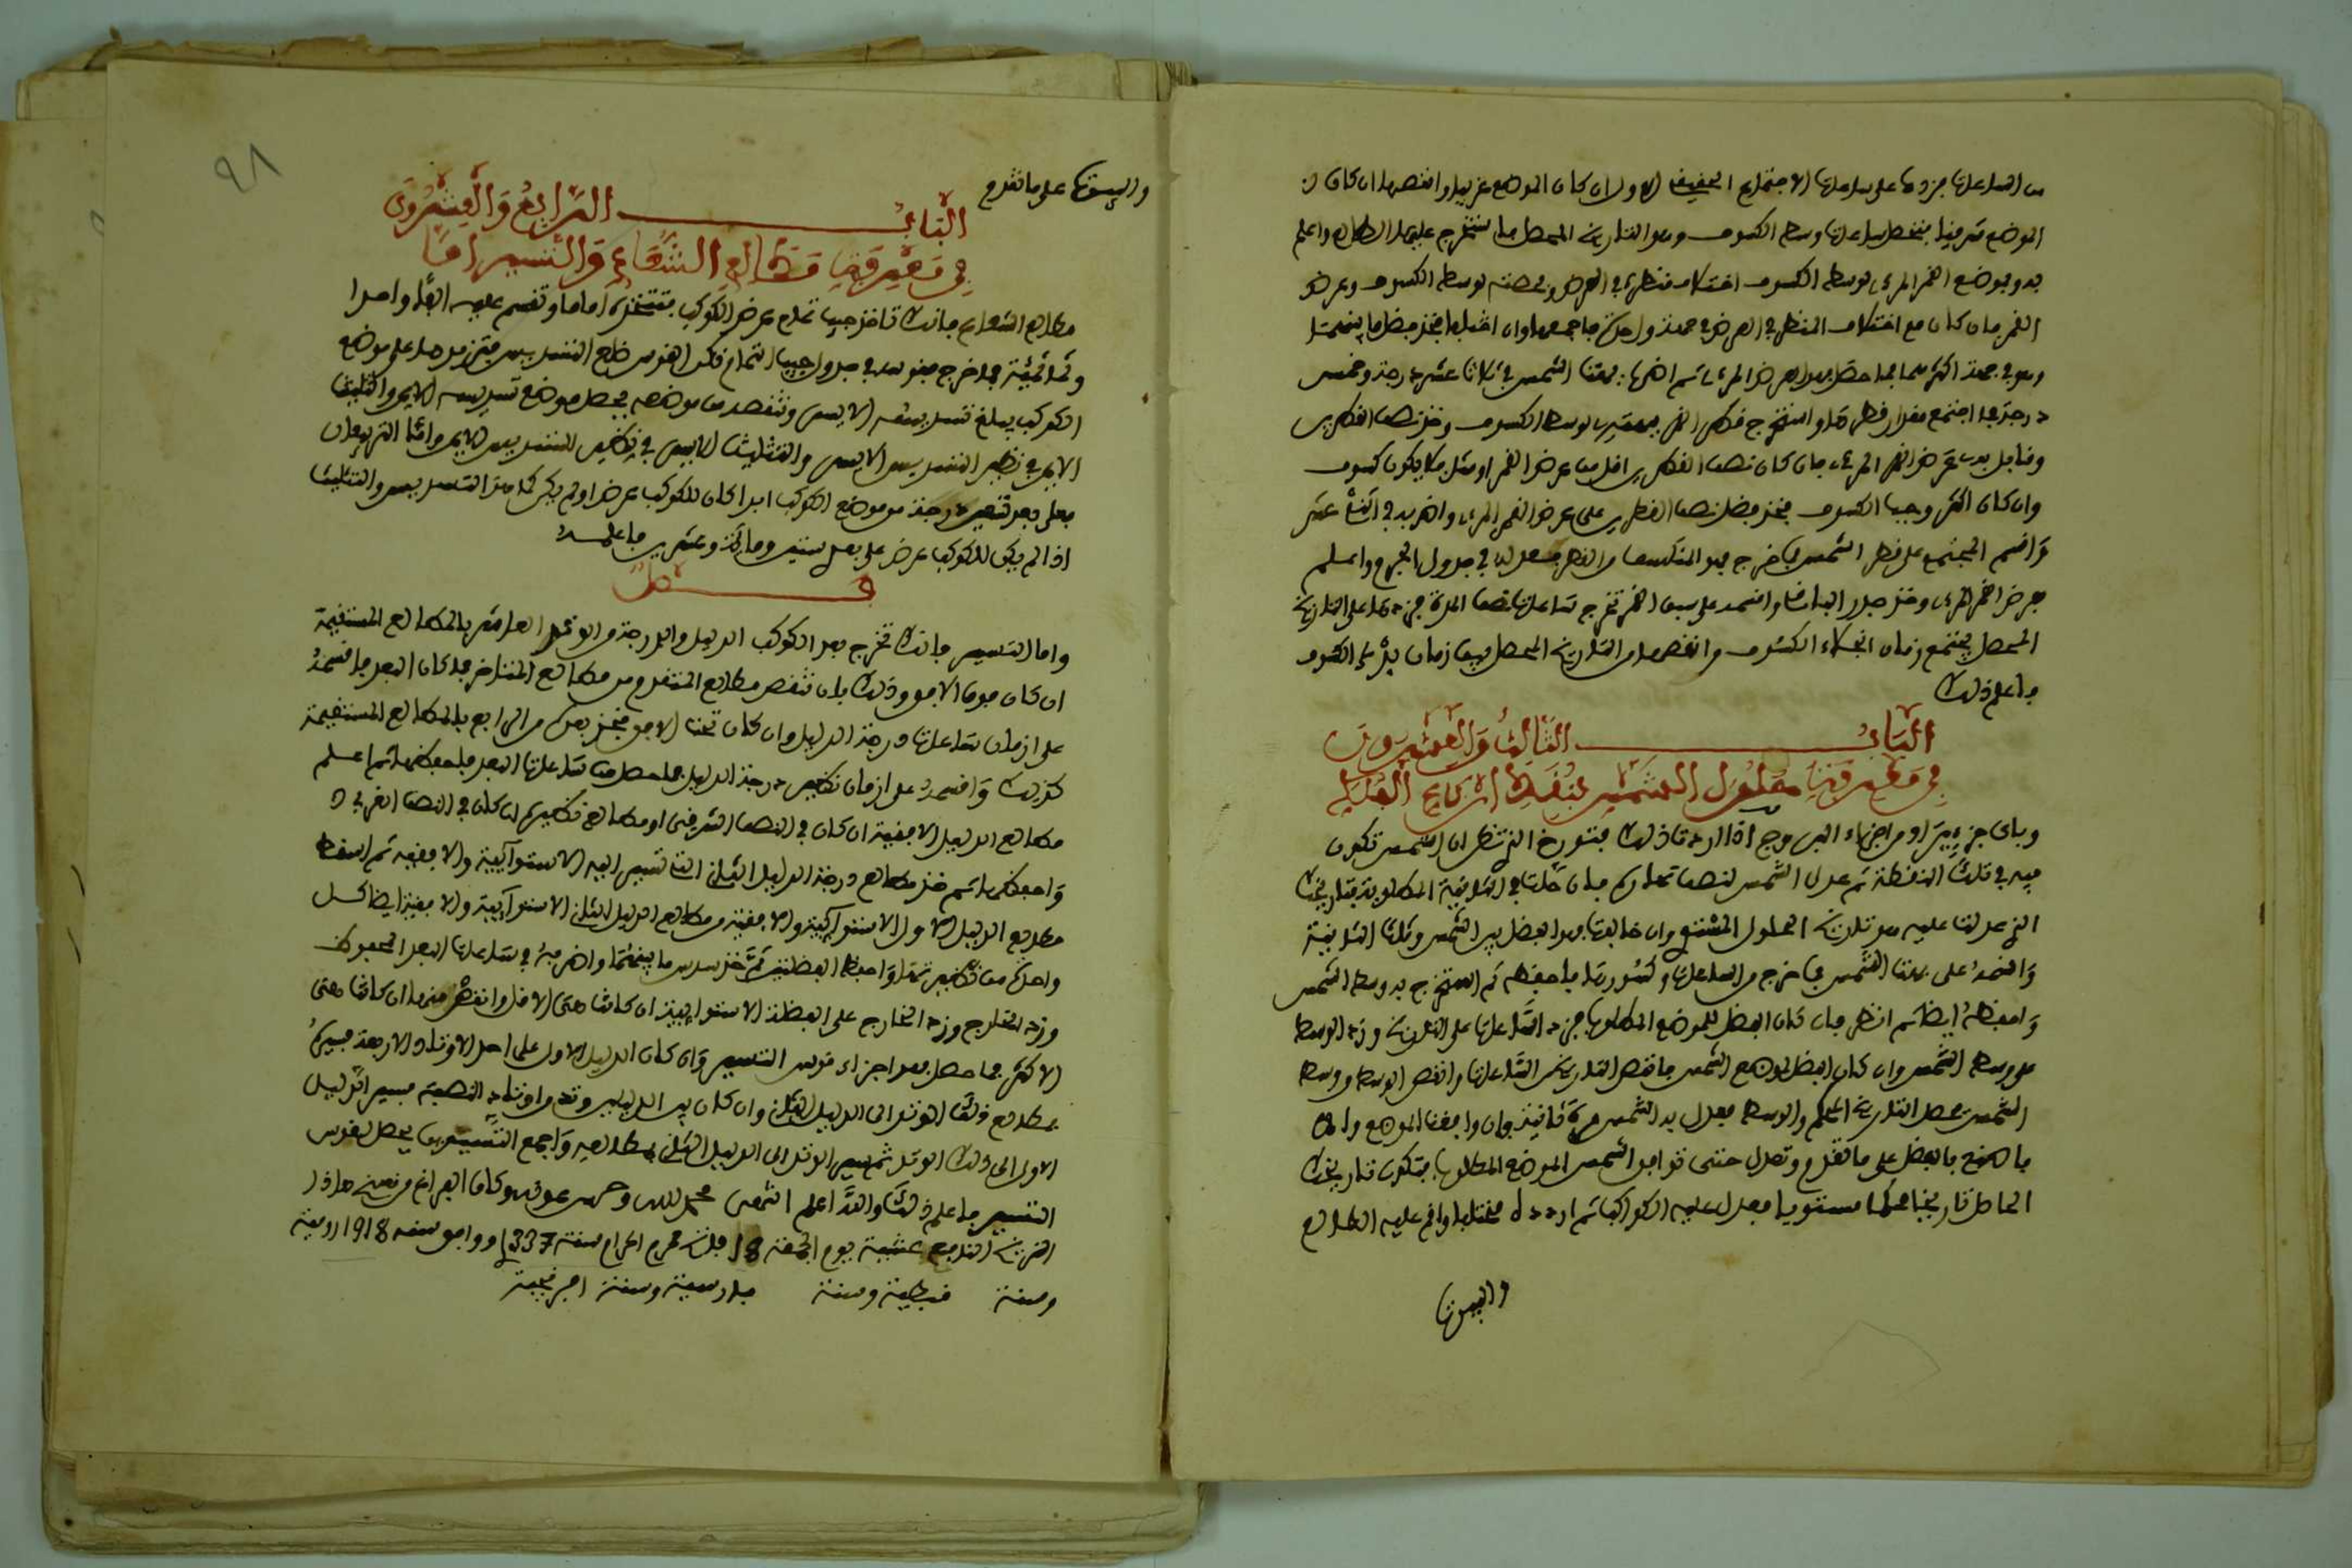 من الساعات فزدها على ساعات الاجتماع الحقيقي الاول ان كان الموضع غربيا وانقصها ان كان
الموضع شرقيا فتحصل ساعات وسط الكسوف وهو التاريخ المحصل فاستخرج عليه الطالع واعلم
به وبموضع القمر المرءى لوسط الكسوف اختلاف منظره في العرض وحصته لوسط الكسوف وعرض
القمر فان كان مع اختلاف المنظر في العرض في جهة واحدة فاجمعهما وان اختلفا فخذ فضل ما بينهما
وهو في جهة اكثرهما فما حصل فهو العرض المرءى ثم اضرب بهت الشمس في ثلاثة عشر درجة وخمس
درجة فما اجتمع فقدار قطرها واستخرج فطر القمر لوسط الكسوف وخذ نصف القطرين
وقابل به عرض القمر المرءى فان كان نصف القطرين اقل من عرض القمر او مثله فلا يكون كسوف
وان كان اكثر وجب الكسوف فخذ فضل نصف القطرين على عرض القمر المرءى واضربه في اثنا عشر
واقسم المجتمع على قطر الشمس فما خرج فهو المنكسف من القطر
عرض القمر المرءى وخذ جذر الباقي واقسمه على سبق القمر تخرج ساعات نصف المدة فزدها على التاريخ
المحصل يجتمع زمان انجلاء الكسوف وانقصها من التاريخ المحصل يبقى زمان بدء الكسوف
فاعلم ذلك
الباب الثالث والعشرون
في معرفة حلول الشمس بنقط ارباع الفلك
وباى جزء من اجزاء البروج اذا اردت ذلك فتورخ الذى تظن ان الشمس تكون
فيه في تلك النقطة ثم عدل الشمس لنصف نهارك فان حلت في الدقيقة المطلوبة فتاريخك
الذى عدلت عليه هو تاريخ الحلول المستوى وان خالفت فخذ الفضل بين الشمس وتلك الدقيقة
واقسمه على بهت الشمس فما خرج من الساعات وكسورها فاحفظه ثم استخرج به وسط الشمس
واحفظه ايضا ثم انظر فان كان الفضل للموضع المطلوب فزد الساعات على التاريخ وزد الوسط
على وسط الشمس وان كان الفضل لموضع الشمس فانقص من التاريخ الساعات وانقص الوسط من وسط
الشمس يحصل التاريخ المحكم والوسط فعدل به الشمس مرة ثانية فان وافقت الموضع والا
فاصنع بالفضل على ما تقدم وتعدل حتى توافق الشمس الموضع المطلوب فيكون تاريخك
الحاصل تاريخا محكما مستويا فعدل عليه الكواكب ثم اردده مختلفا واقم عليه الطالع
والبيوت
والبيوت على ما تقدم
الباب الرابع والعشرون
في معرفة مطالع الشعاع والتسيير اما
مطالع الشعاع فانك تاخذ جيب تمام عرض الكوكب فتتخذه اماما وتقسم عليه الفا واحدا
وثمانمئة فما خرج فقوسه في جدول جيب التمام فتكن القوس ضلع التسديس فتزيدها على موضع
الكوكب يبلغ تسديسه الايسر وتنقصه من موضعه يحصل موضع تسديسه الايمن والتثليث
الايمن في نظير التسديس الايسر والتثليث الايسر في نظير التسديس الايمن واما التربيعان
فعلى بعد تسعين درجة من موضع الكوكب ابدا كان للكوكب عرض او لم يكن كذا التسديس والتثليث
اذا لم يكن للكوكب عرض على بعد ستين ومائة وعشرين فاعلمه
فصل
واما التسيير فانك تخرج بعد الكوكب الدليل والدرجة من الوتد العاشر بالمطالع المستقيمة
ان كان فوق الافق وذلك بان تنقص مطالع المتقدم من مطالع المتاخر فما كان البعد فاقسمه
على ازمان ساعات درجة الدليل وان كان تحت الافق فخذ بعده من الرابع بالمطالع المستقيمة
كذلك واقسمه على ازمان نظير درجة الدليل فما حصل من ساعات البعد فاحفظها ثم اعلم
مطالع الدليل الافقية ان كان في النصف الشرقي او مطالع نظيره ان كان في النصف الغربي
واحفظها ثم خذ مطالع درجة الدليل الثاني الذى تسير اليه الاستوائية والافقية ثم اسقط
مطالع الدليل الاول الاستوائية والافقية من مطالع الدليل الثاني الاستوائية والافقية ايضا كل
واحدة من نظيرتها واحفظ الفضلتين ثم خذ سدس ما بينهما واضربه في ساعات البعد المحفوظة
وزد الخارج على الفضلة الاستوائية ان كانت هي الاقل وانقصه منها ان كانت هي
الاكثر فما حصل فهو اجزاء قوس التسيير وان كان الدليل الاول على احد الاوتاد الاربعة فسيره
بمطالع ذلك الوتد الى الدليل الثاني وان كان بين الدليلين وتد من اوتاد النصبة فسير الدليل
الاول الى ذلك الوتد ثم سير الوتد الى الدليل الثاني بمطالعه واجمع التسييرين يحصل لقوس
التسيير فاعلم ذلك والله اعلم انتهى بحمد الله وحسن عونه وكان الفراغ من نسخ هاذا
الزيج النافع عشية يوم الجمعة 18 فاتح محرم الحرام سنة 1337 ووافق سنه 1918 رومية
وسنة قبطية وسنة فارسية وسنة افرنجية
٩٨